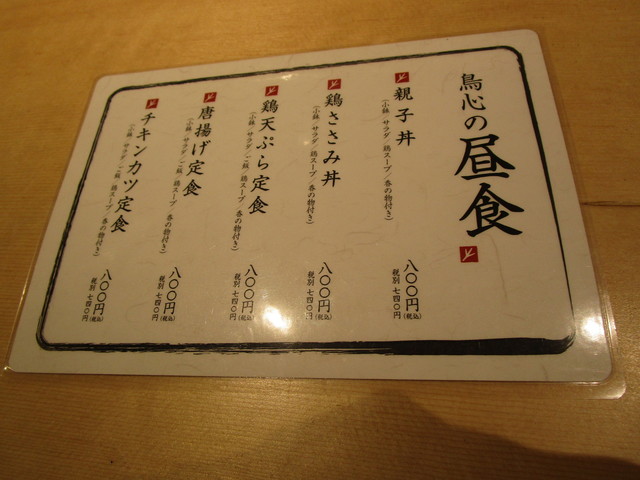 鳥心の昼食
親子丼
(小鉢/サラダ/鶏スープ/香の物付き)
八〇〇円(税込)
税別 七四〇円
鶏ささみ丼
(小鉢/サラダ/鶏スープ/香の物付き)
八〇〇円(税込)
税別 七四〇円
鶏天ぷら定食
(小鉢/サラダ/ご飯/鶏スープ/香の物付き)
八〇〇円(税込)
税別 七四〇円
唐揚げ定食
(小鉢/サラダ/ご飯/鶏スープ/香の物付き)
八〇〇円(税込)
税別 七四〇円
チキンカツ定食
(小鉢/サラダ/ご飯/鶏スープ/香の物付き)
八〇〇円(税込)
税別 七四〇円